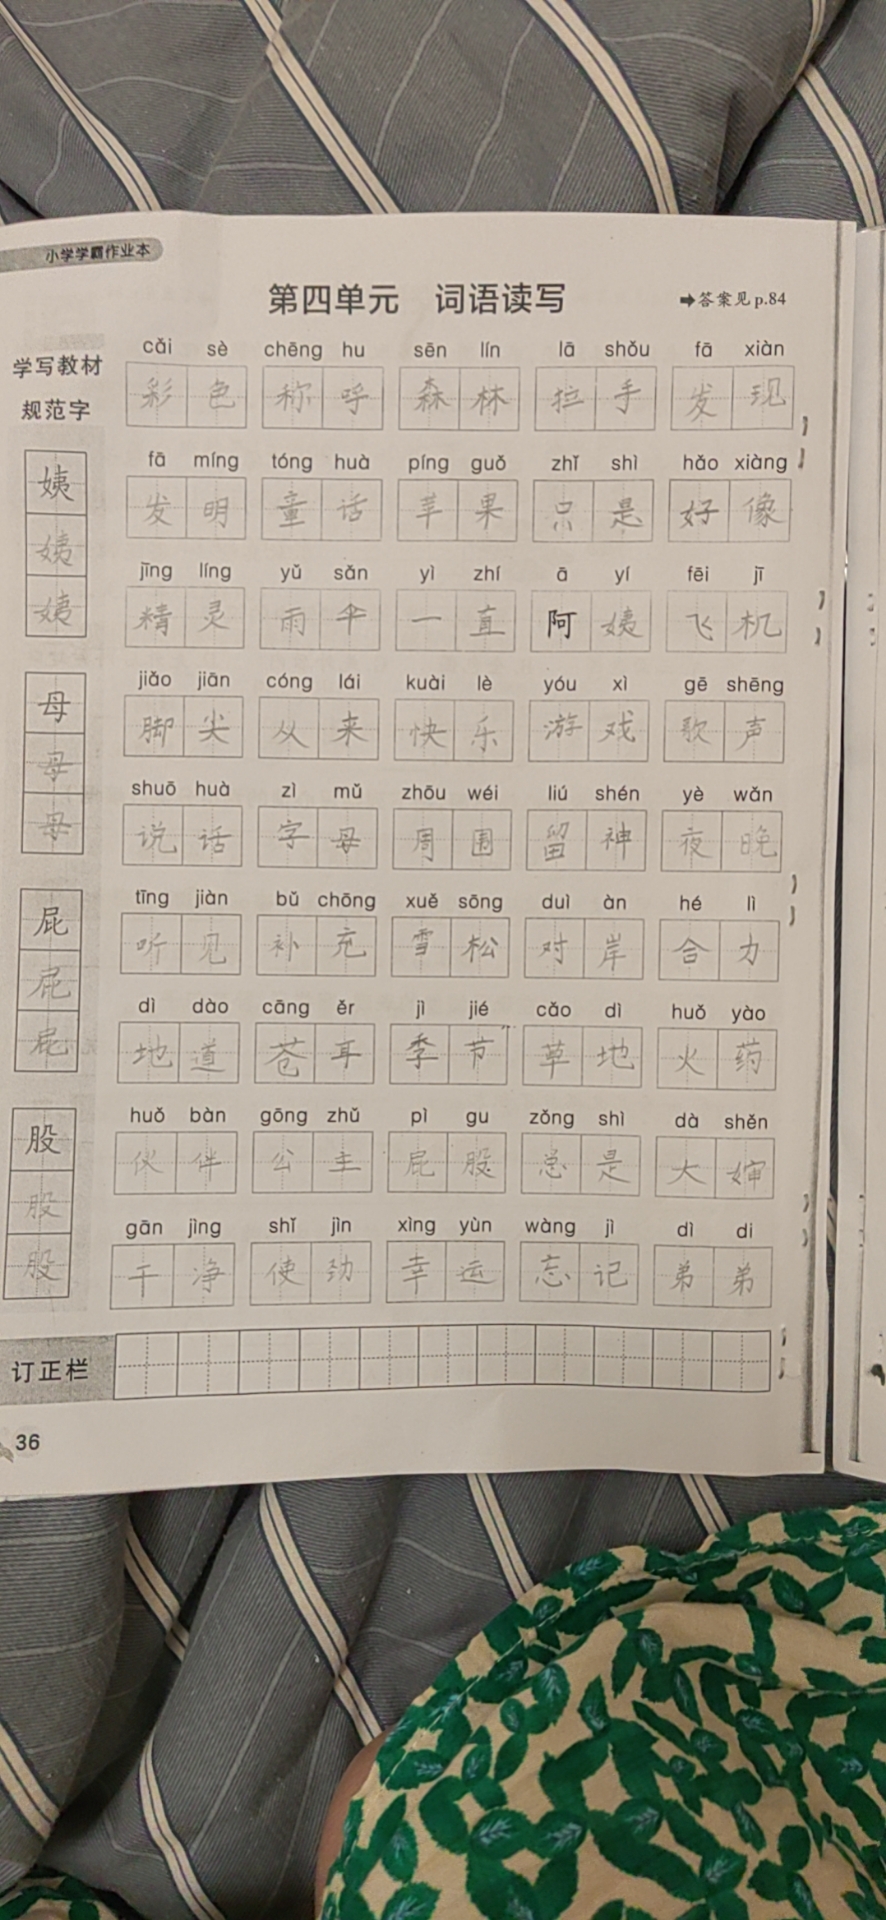 小学学霸作业本
第四单元 词语读写
➡答案见 p.84
学写教材
规范字
姨
姨
姨
母
母
母
屁
屁
屁
股
股
股
cǎi sè chēng hu sēn lín lā shǒu fā xiàn
彩色 称呼 森林 拉手 发现
fā míng tóng huà píng guǒ zhǐ shì hǎo xiàng
发明 童话 苹果 只是 好像
jīng líng yǔ sǎn yì zhí ā yí fēi jī
精灵 雨伞 一直 阿姨 飞机
jiǎo jiān cóng lái kuài lè yóu xì gē shēng
脚尖 从来 快乐 游戏 歌声
shuō huà zì mǔ zhōu wéi liú shén yè wǎn
说话 字母 周围 留神 夜晚
tīng jiàn bǔ chōng xuě sōng duì àn hé lì
听见 补充 雪松 对岸 合力
dì dào cāng ěr jì jié cǎo dì huǒ yào
地道 苍耳 季节 草地 火药
huǒ bàn gōng zhǔ pì gu zǒng shì dà shěn
伙伴 公主 屁股 总是 大婶
gān jìng shǐ jìn xìng yùn wàng jì dì di
干净 使劲 幸运 忘记 弟弟
订正栏
36